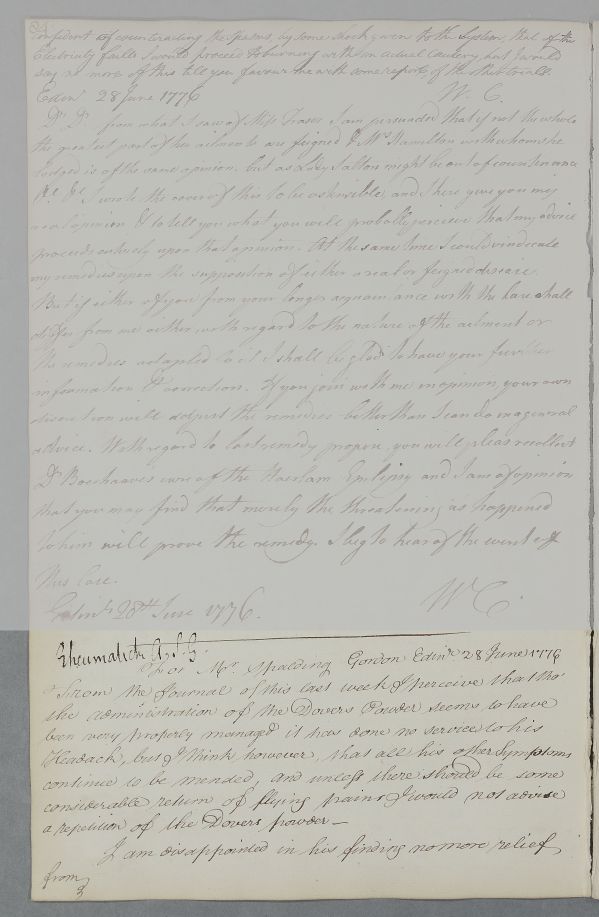 Confident of counteracting the Spasms, by some shock given to the System, that if the
Electricity fails I would proceed to burning with an actual Cautery, but I would
say no more of this till you favour me with some report of the other trials.
Edinr 28 June 1776 W. C.
Dr Dr from what I saw of Miss Fraser I am persuaded that if not the whole
the greatest part of her ailments are feigned & Mrs Hamilton with whom she
lodged is of the same opinion. but as Lady Salton might be out of countenance
&c &c I wrote the cover of this to be ostensible, and there give you my
real opinion & to tell you what you will probably perceive that my advice
proceeds entirely upon that opinion. At the same time I could vindicate
my remedies upon the supposition of either a real or feigned disease.
But if either of you from your longer acquaintance with the case shall
differ from me either with regard to the nature of the ailment or
the remedies adapted to it I shall be glad to have your further
information & corrections. If you join with me in opinion, your own
discretion will adjust the remedies better than I can do in a general
advice. With regard to last remedy propos'd, you will please recollect
Dr Boerhaaves cure of the Haerlam Epilepsy and I am of opinion
that you may find that merely the threatening as happened
to him will prove the remedy. I beg to hear of the event of
this Case.
Edinr 28th June 1776. WC.
Rheumatick A. S. G.
For Mr. Spalding Gordon Edinr. 28 June 1776
From the Journal of this last week I perceive that tho'
the administration of the Dovers Powder seems to have
been very properly managed it has done no service to his
Headach, but I think however, that all his other Symptoms
continue to be mended, and unless there should be some
considerable return of flying pains I would not advise
a repetition of the Dovers powder—
I am disappointed in his finding no more relief
from